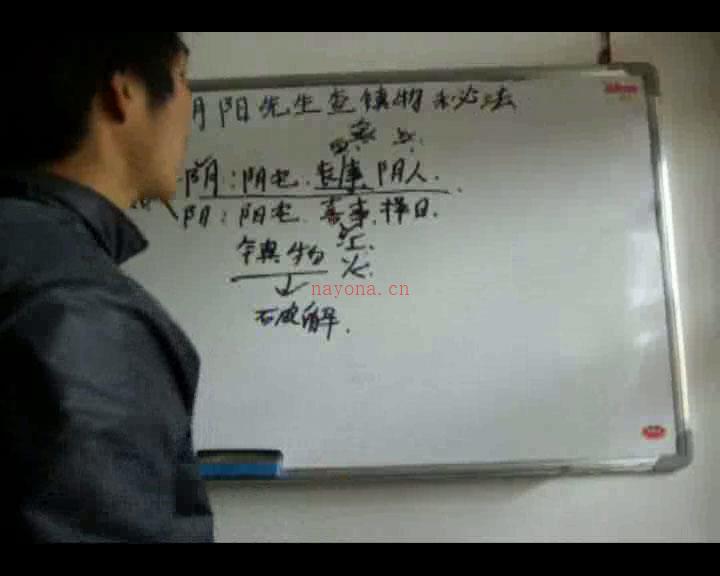 阴阳先生查镇物秘法
阴：阴宅．丧事．阴人．
阳：阳宅．喜事．择日．
镇物
火．
nayona.cn
破解．